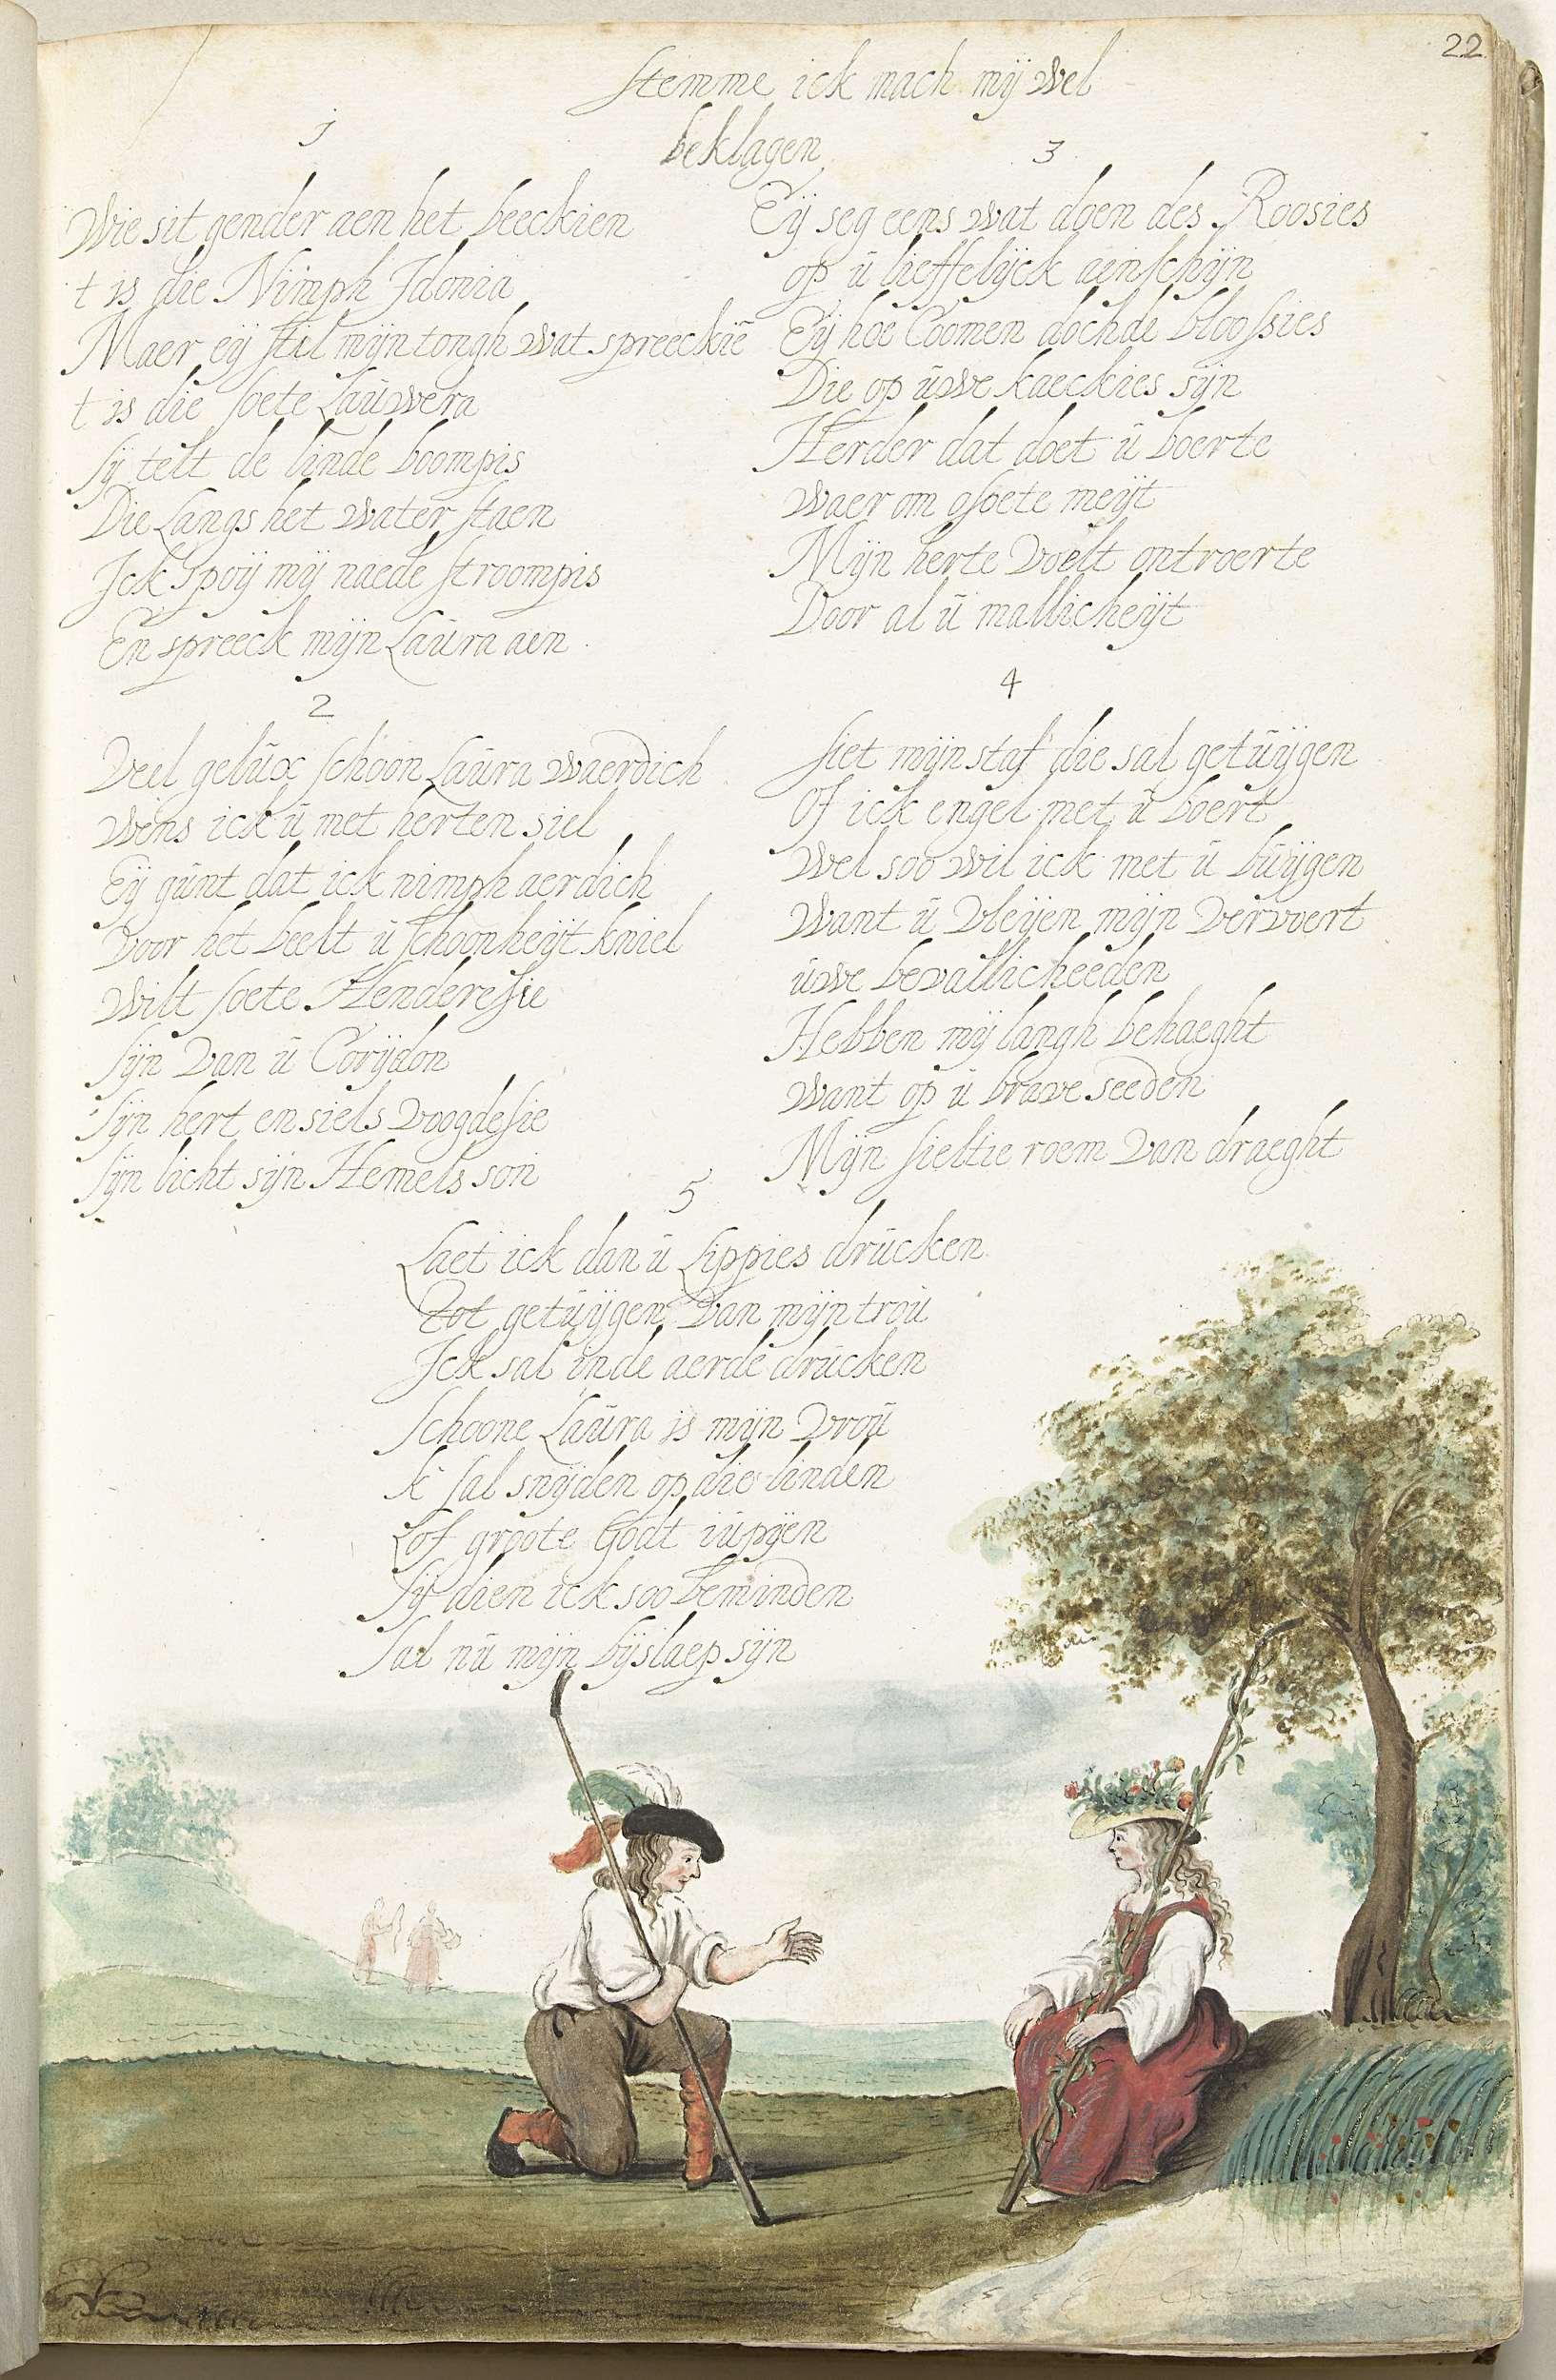 22
Stemme ick mach mij wel
beklagen
1
Wie sit gender aen het beeckien
t is die Nimph Idonia
Maer eij stil mijn tongh wat spreeckie
t is die soete Lauwera
sij telt de linde boompis
Die Langs het water staen
Ick spoij mij naede stroompis
En spreeck mijn Laura aen
2
Veel gelux schoon Laura waerdich
wens ick u met herten siel
Eij gunt dat ick nimph aerdich
voor het beelt u schoonheijt kniel
wilt soete Henderesie
sijn van u Corijdon
sijn hert en siels voogdesie
sijn licht sijn Hemels son
3
Eij seg eens wat doen des Roosies
op u lieffelijck ainschijn
Eij hoe Coomen dochde bloossies
Die op uwe kaeckies sijn
Herder dat doet u boerte
waer om o soete meijt
Mijn herte voelt ontroerte
Door al u mallicheijt
4
siet mijn staf die sal getuijgen
Of ick engel met u boert
wel soo wil ick met u buijgen
want u vleijen mijn vervoert
uwe bevallicheeden
Hebben mij langh behaeght
want op u brave seeden
Mijn sieltie roem van draeght
5
Laet ick dan u Lippies drucken
Tot getuijgen van mijn trou
Ick sal inde aerde drucken
schoone Laura is mijn vrou
k sal snijden op die linden
Lof groote Godt iupijen
sij dien ick soo beminden
sal nu mijn bijslaep sijn